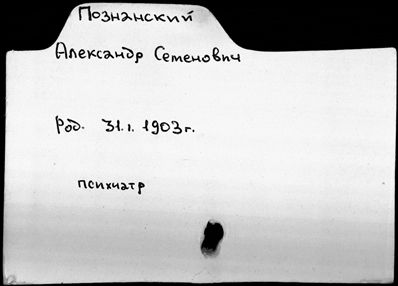 Познанский
Александр Семенович
Род. 31.1. 1903г.
психиатр